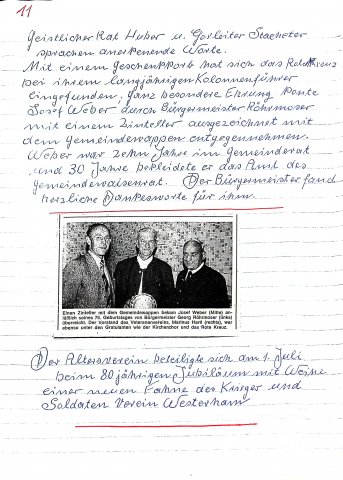 11
Geistlicher Rat Heber u. Gorleiter Stacheter
sprachen anerkenende Worte.
Mit einem Geschenkkorb hat sich das Rote Kreuz
bei ihrem langjährigen Kolonnenführer
eingefunden. Ganz besondere Ehrung konte
Josef Weber durch Bürgermeister Röhrmoser
mit einem Zinteller ausgezeichnet mit
dem Gemeindewappen entgegennehmen.
Weber war zehn Jahre im Gemeinderat
und 30 Jahre bekleidete er das Amt des
Gemeindewaisenrat. Der Bürgermeister fand
herzliche Dankesworte für ihm.
Einen Zinteller mit dem Gemeindewappen bekam Josef Weber (Mitte) an-
läßlich seines 75. Geburtstages von Bürgermeister Georg Röhrmoser (links)
überreicht. Der Vorstand des Veteranenvereins, Marinus Hartl (rechts), war
ebenso unter den Gratulanten wie der Kirchenchor und das Rote Kreuz.
Der Altersverein beteiligte sich am 1. Juli
beim 80jährigen Jubiläum mit Weihe
einer neuen Fahne des Krieger und
Soldaten Verein Westerham